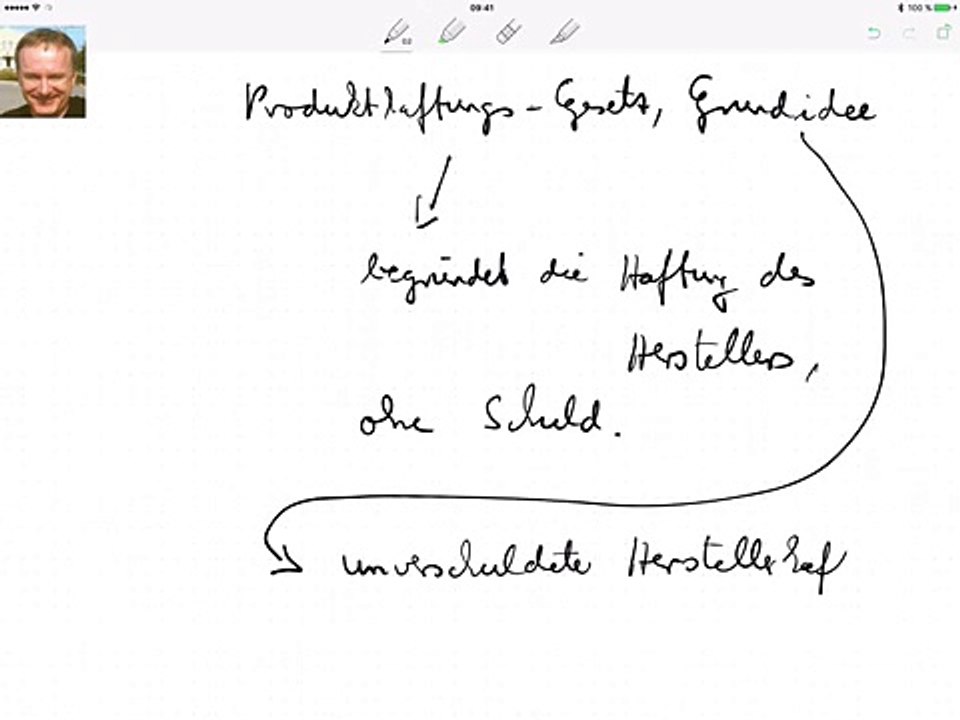 09:41
100 %
Produkthaftungs-Gesetz, Grundidee
begründet die Haftung des
Herstellers,
ohne Schuld.
unverschuldete Herstellerhaf